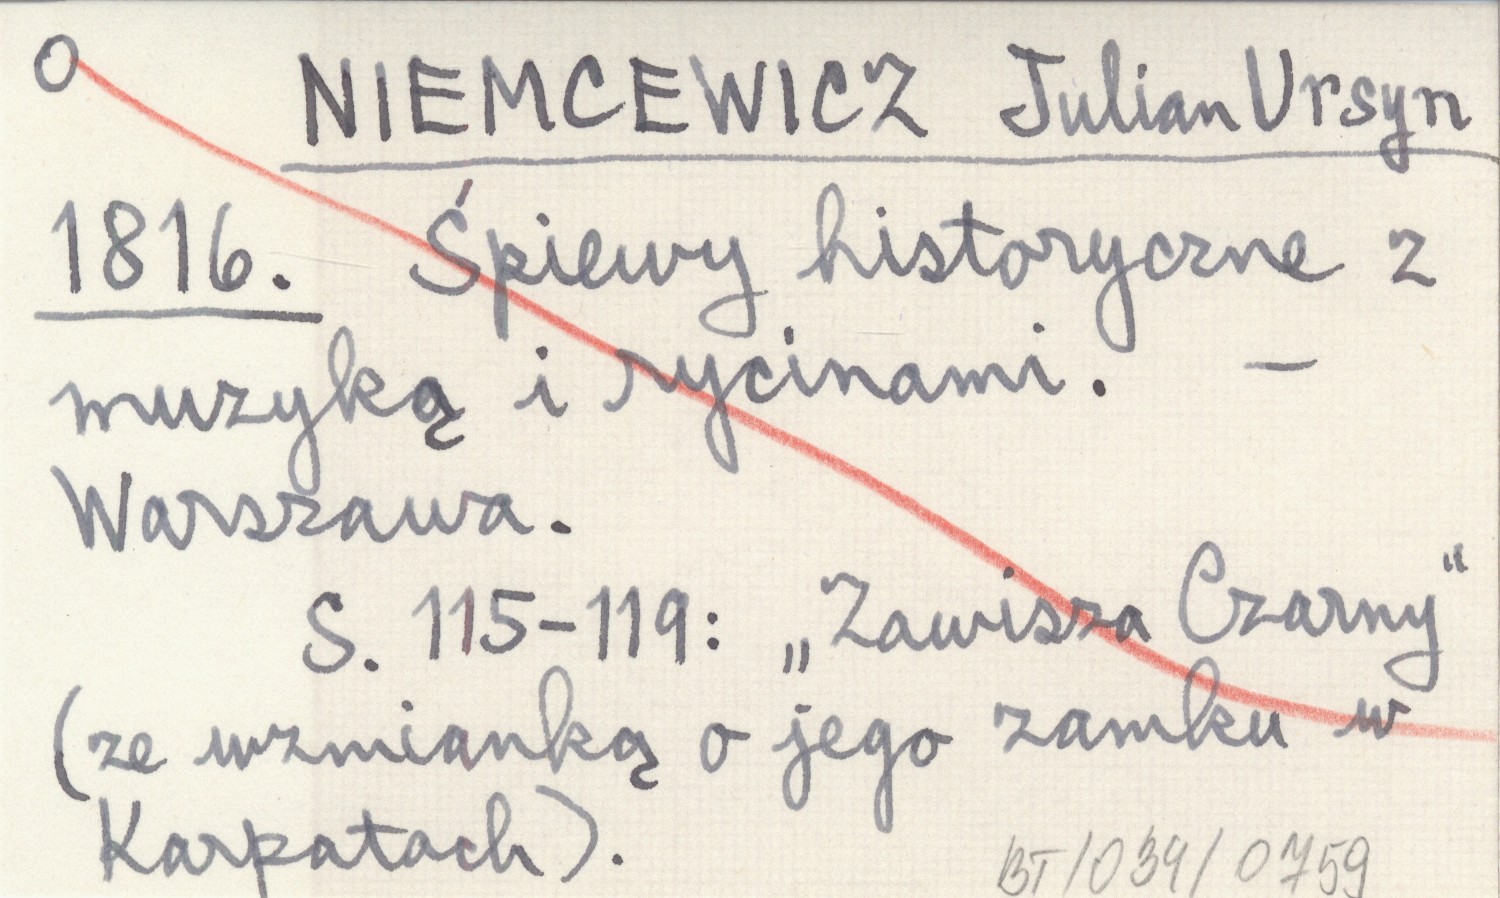 O NIEMCEWICZ Julian Ursyn
1816. Śpiewy historyczne z
muzyką i rycinami. —
Warszawa.
S. 115-119: „Zawisza Czarny"
(ze wzmianką o jego zamku w
Karpatach).
BT/039/0759